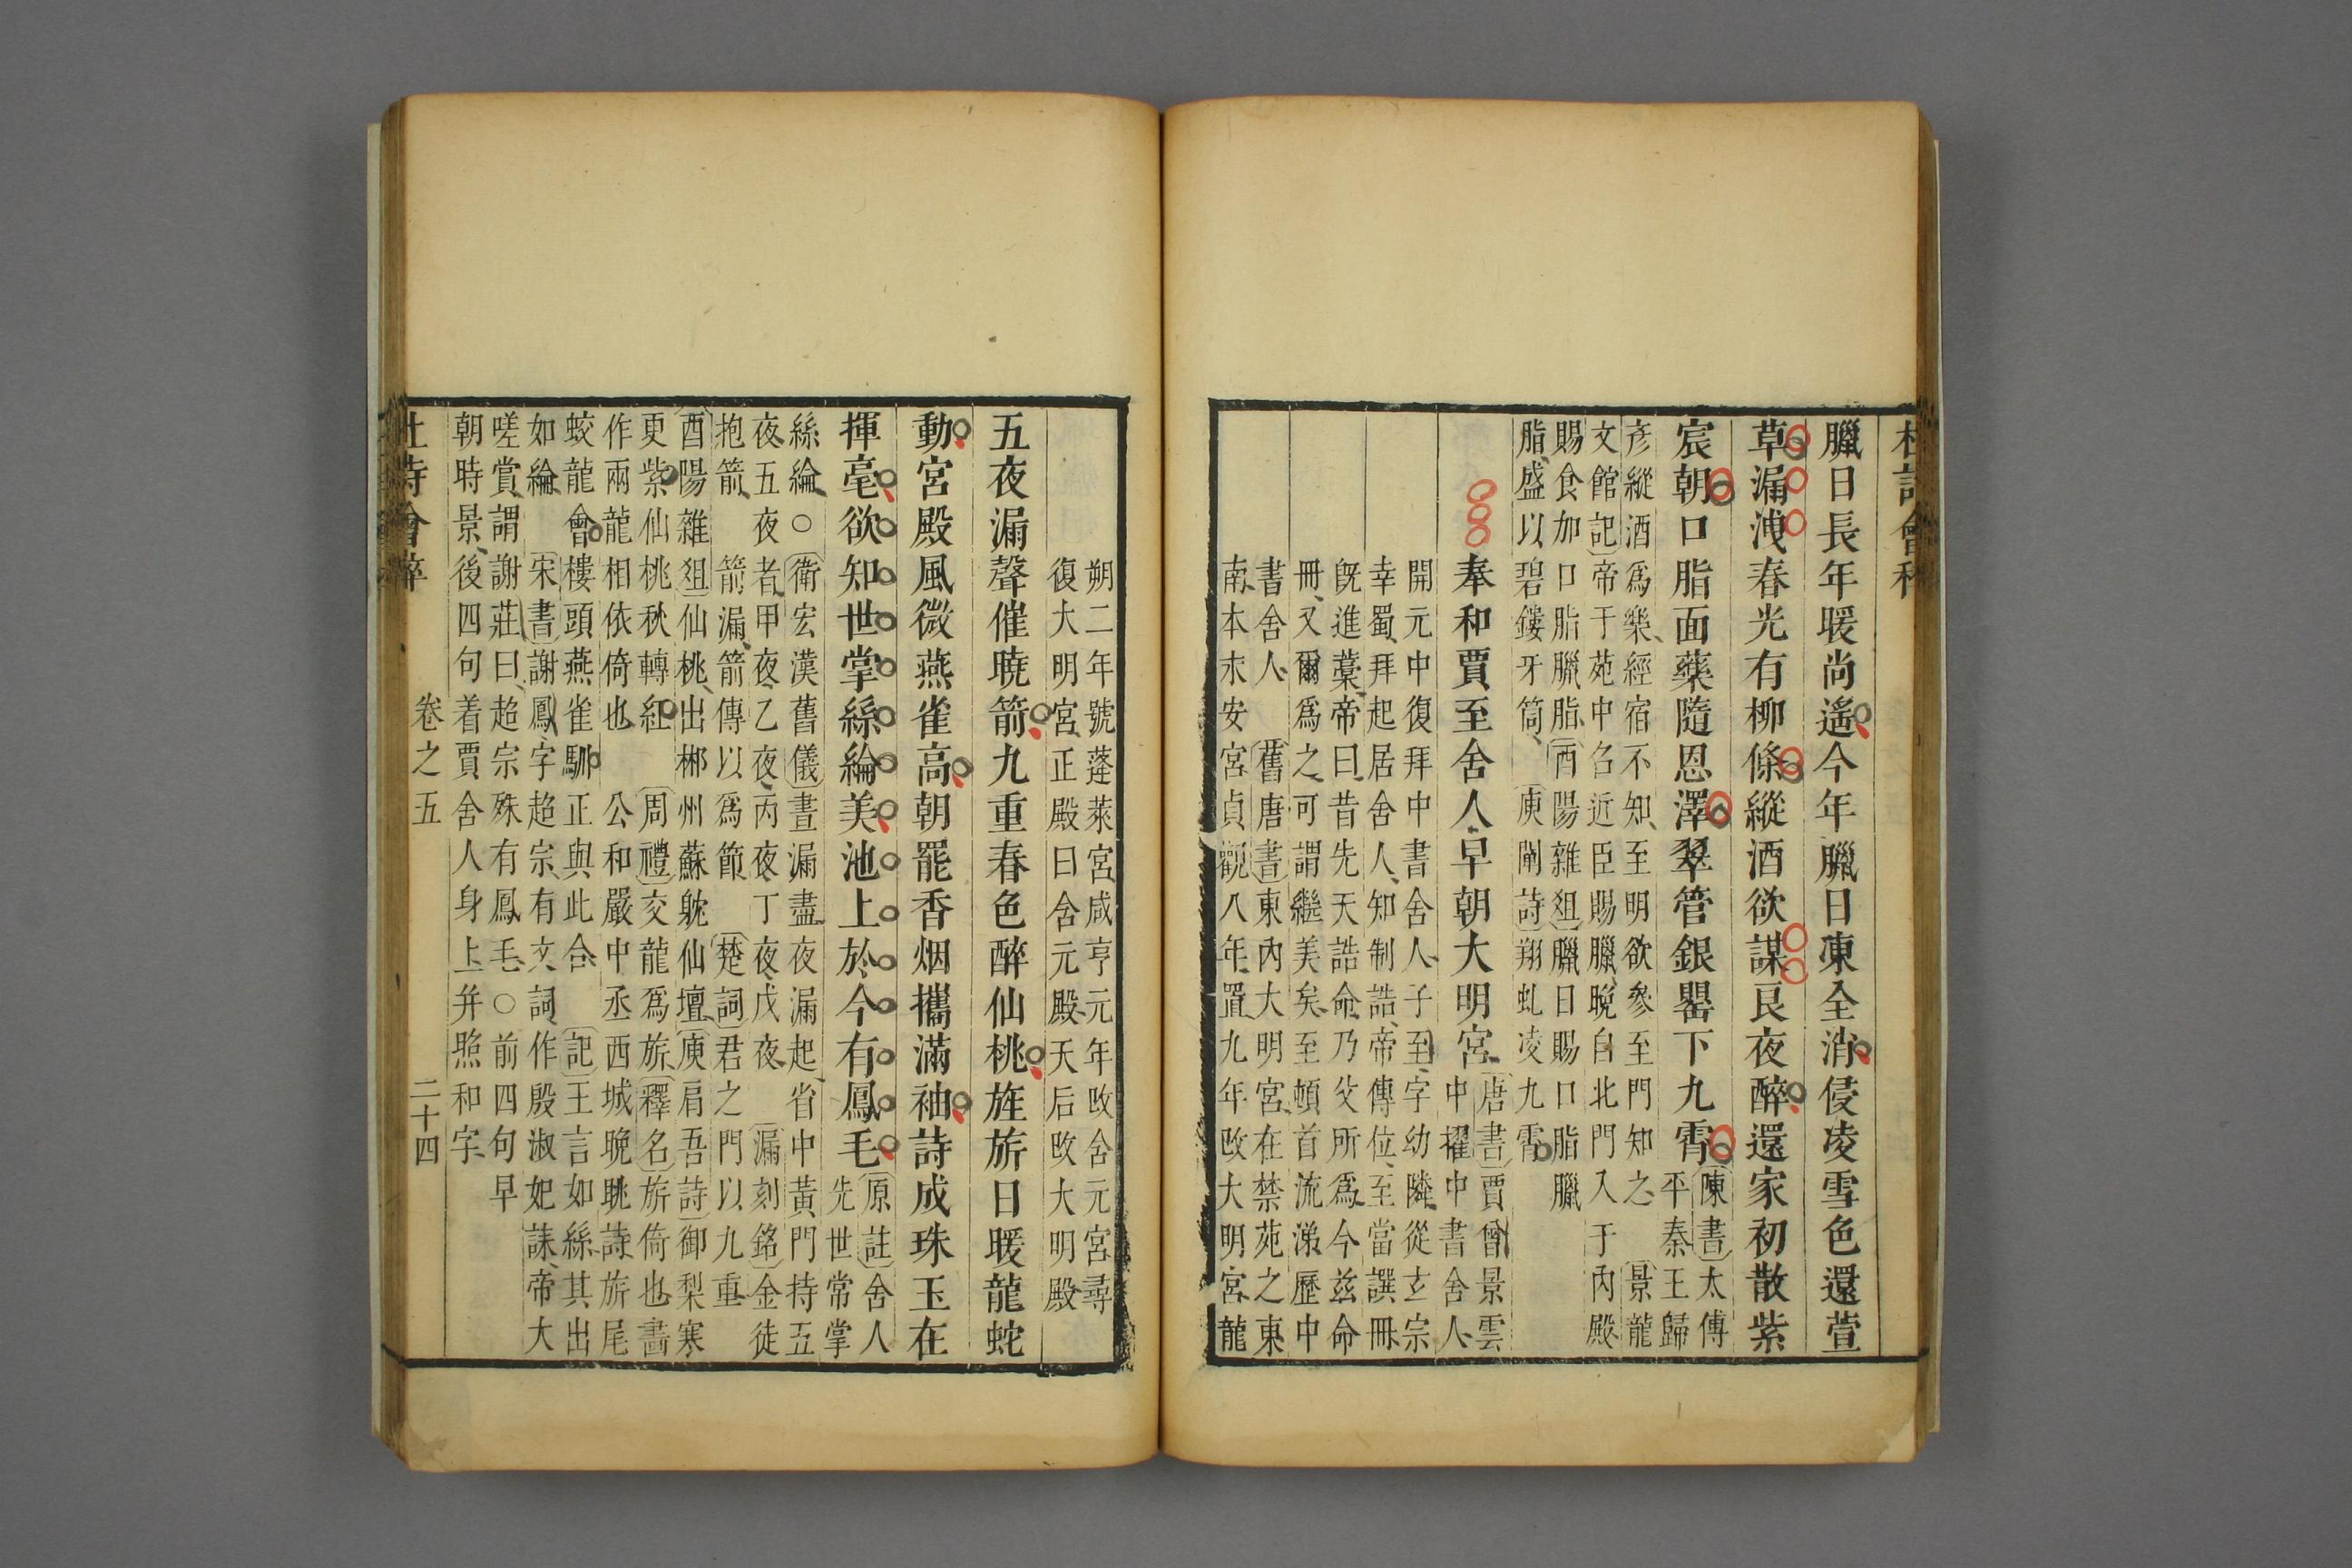 臘日長年暖尚遙今年臘日凍全消侵凌雪色還萱
草漏洩春光有柳條縱酒欲謀良夜醉還家初散紫
宸朝口脂面藥隨恩澤翠管銀罌下九霄
陳書太傅
平秦王歸
彦縱酒爲樂經宿不知至明欲參至門知之景龍
文館記帝于苑中召近臣賜臘晚自北門入于內殿
賜食加口脂臘脂酉陽雜俎臘日賜口脂臘
脂盛以碧鏤牙筒庾闡詩翔虬凌九霄
奉和賈至舍人早朝大明宮
唐書賈曾景雲
中擢中書舍人
開元中復拜中書舍人子至字幼隣從玄宗
幸蜀拜起居舍人知制誥帝傳位至當譔冊
旣進藁帝曰昔先天誥命乃父所爲今兹命
冊又爾爲之可謂繼美矣至頓首流涕歷中
書舍人舊唐書東內大明宮在禁苑之東
南本永安宮貞觀八年置九年改大明宮龍
朔二年號蓬萊宮咸亨元年改含元宮尋
復大明宮正殿曰含元殿天后改大明殿
五夜漏聲催曉箭九重春色醉仙桃旌旂日暖龍蛇
動宮殿風微燕雀高朝罷香烟攜滿袖詩成珠玉在
揮毫欲知世掌絲綸美池上於今有鳳毛
原註舍人
先世常掌
絲綸○衛宏漢舊儀晝漏盡夜漏起省中黃門持五
夜五夜者甲夜乙夜丙夜丁夜戊夜漏刻銘金徒
抱箭箭漏箭傳以爲節楚詞君之門以九重
酉陽雜俎仙桃出郴州蘇躭仙壇庾肩吾詩御梨寒
更紫仙桃秋轉紅周禮交龍爲旂釋名旂倚也畵
作兩龍相依倚也公和嚴中丞西城晚眺詩旂尾
蛟龍會樓頭燕雀馴正與此合記王言如絲其出
如綸宋書謝鳳字超宗有文詞作殷淑妃誄帝大
嗟賞謂謝莊曰超宗殊有鳳毛○前四句早
朝時景後四句着賈舍人身上并照和字
杜詩會稡 卷之五 二十四